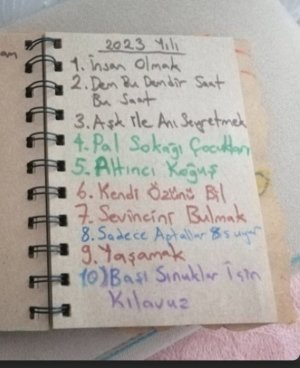 2023 Yılı
1. İnsan Olmak
2. Dem Bu Demdir Saat
Bu Saat
3. Aşk ile Anı Seyretmek
4. Pal Sokağı Çocukları
5. Altıncı Koğuş
6. Kendi Özünü Bil
7. Sevincini Bulmak
8. Sadece Aptallar 8s uyur
9. Yaşamak
10) Başı Sınuklar İçin
Kılavuz